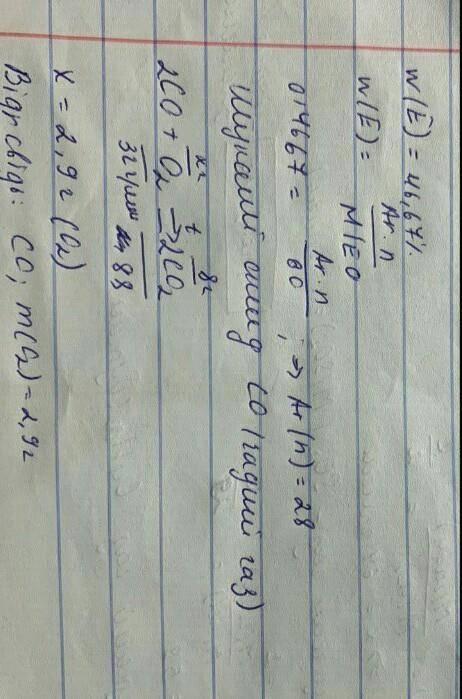 w(E) = 46,67%
w(E) = Ar·n / M(EO
0,4667 = Ar·n / 60 ; => Ar(n) = 28
Шуканий оксид CO (чадний газ)
xг 8г
2CO + O2 t=> 2CO2
32 г/моль 88
x = 2,9г (O2)
Відповідь: CO; m(O2) = 2,9г